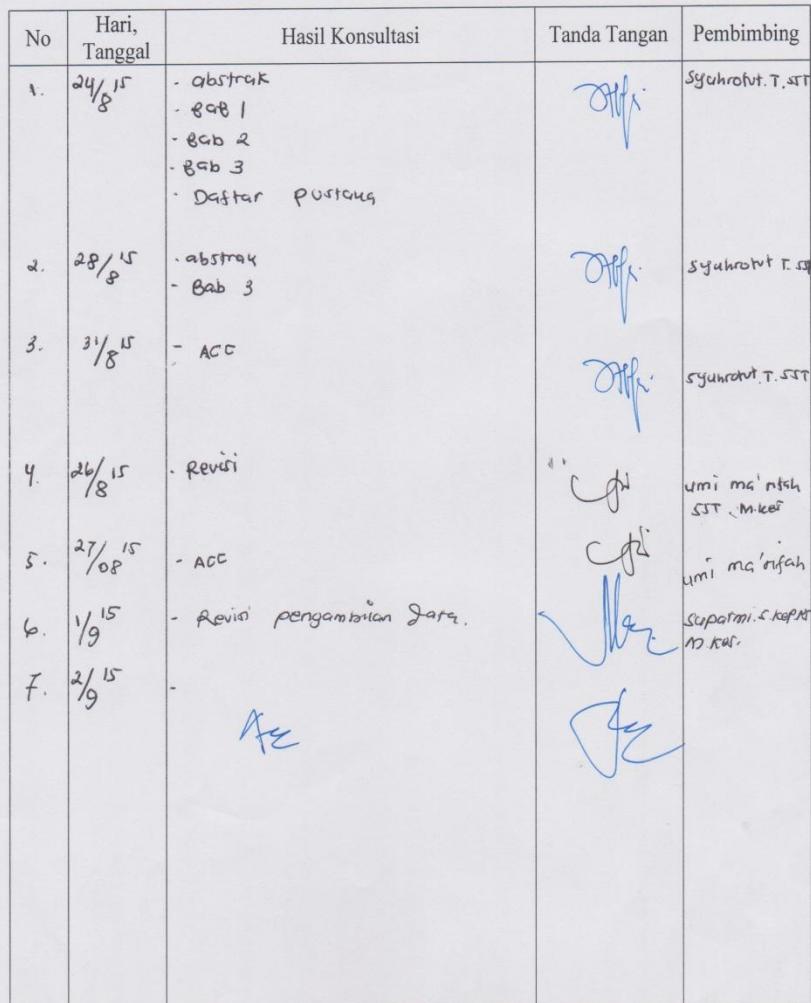 No Hari, Tanggal Hasil Konsultasi Tanda Tangan Pembimbing
1. 24/8 15 - abstrak Syuhrotut. T. SST
- Bab 1
- Bab 2
- Bab 3
- Daftar pustaka
2. 28/8 15 - abstrak Syuhrotut T. SST
- Bab 3
3. 31/8 15 - ACC Syuhrotut. T. SST
4. 26/8 15 - Revisi umi ma'rifah
SST. M.kes
5. 27/08 15 - ACC umi ma'rifah
6. 1/9 15 - Revisi pengambilan data. Suparmi. S.Kep
M.Kes.
7. 2/9 15 -
Acc